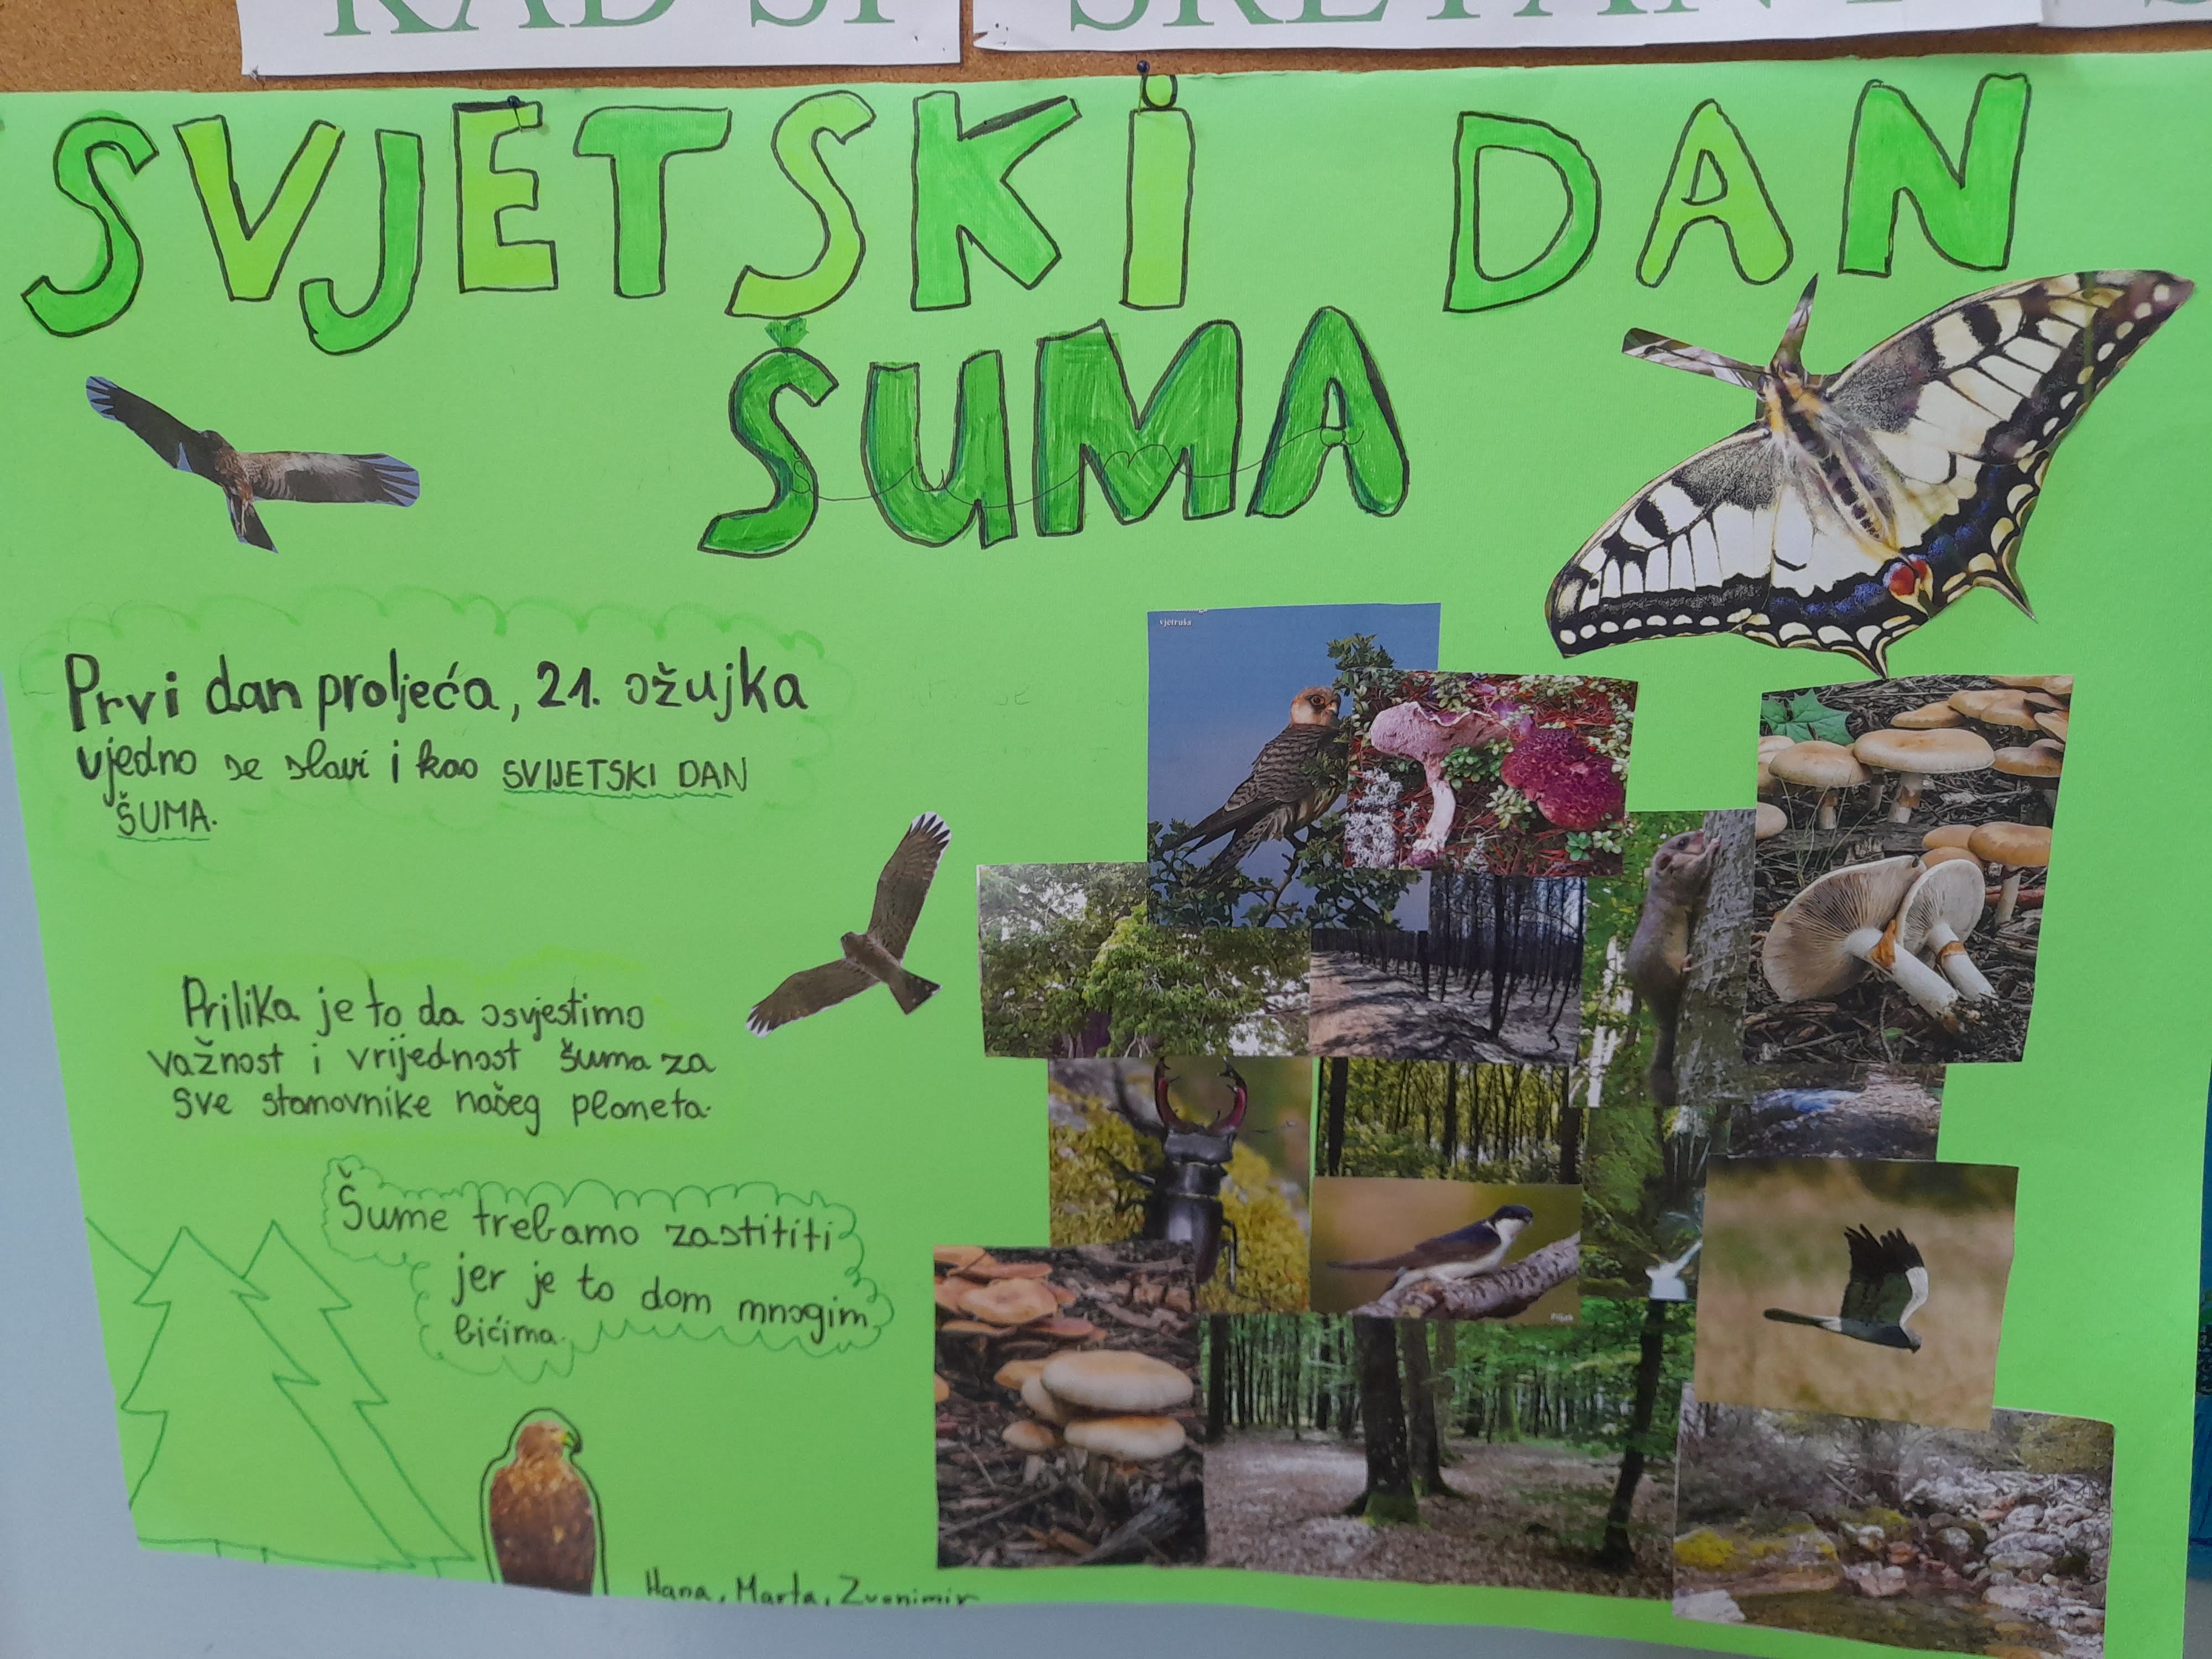 KAD SI SRETAN
SVJETSKI DAN
ŠUMA
vjetruša
Prvi dan proljeća, 21. ožujka
ujedno se slavi i kao SVIJETSKI DAN
ŠUMA.
Prilika je to da osvjestimo
važnost i vrijednost šuma za
sve stanovnike našeg planeta.
Šume trebamo zastititi
jer je to dom mnogim
bićima.
Piljak
Hana, Marta, Zvonimir